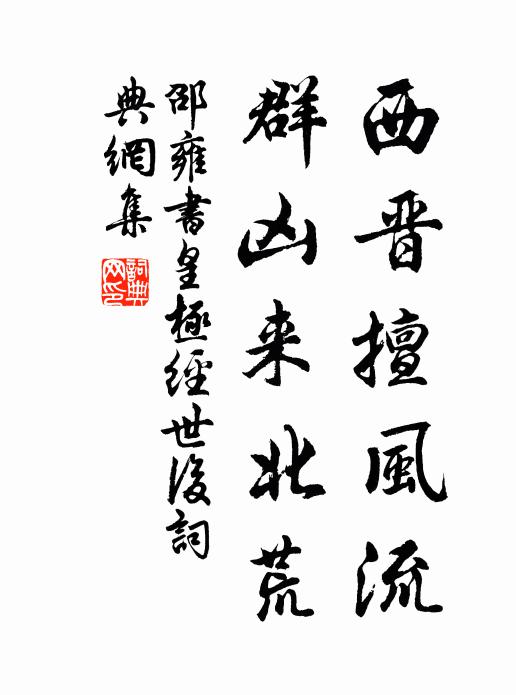 西晋擅風流
群凶来北荒
邵雍書皇極經世後詞
典網集
詞典
网印